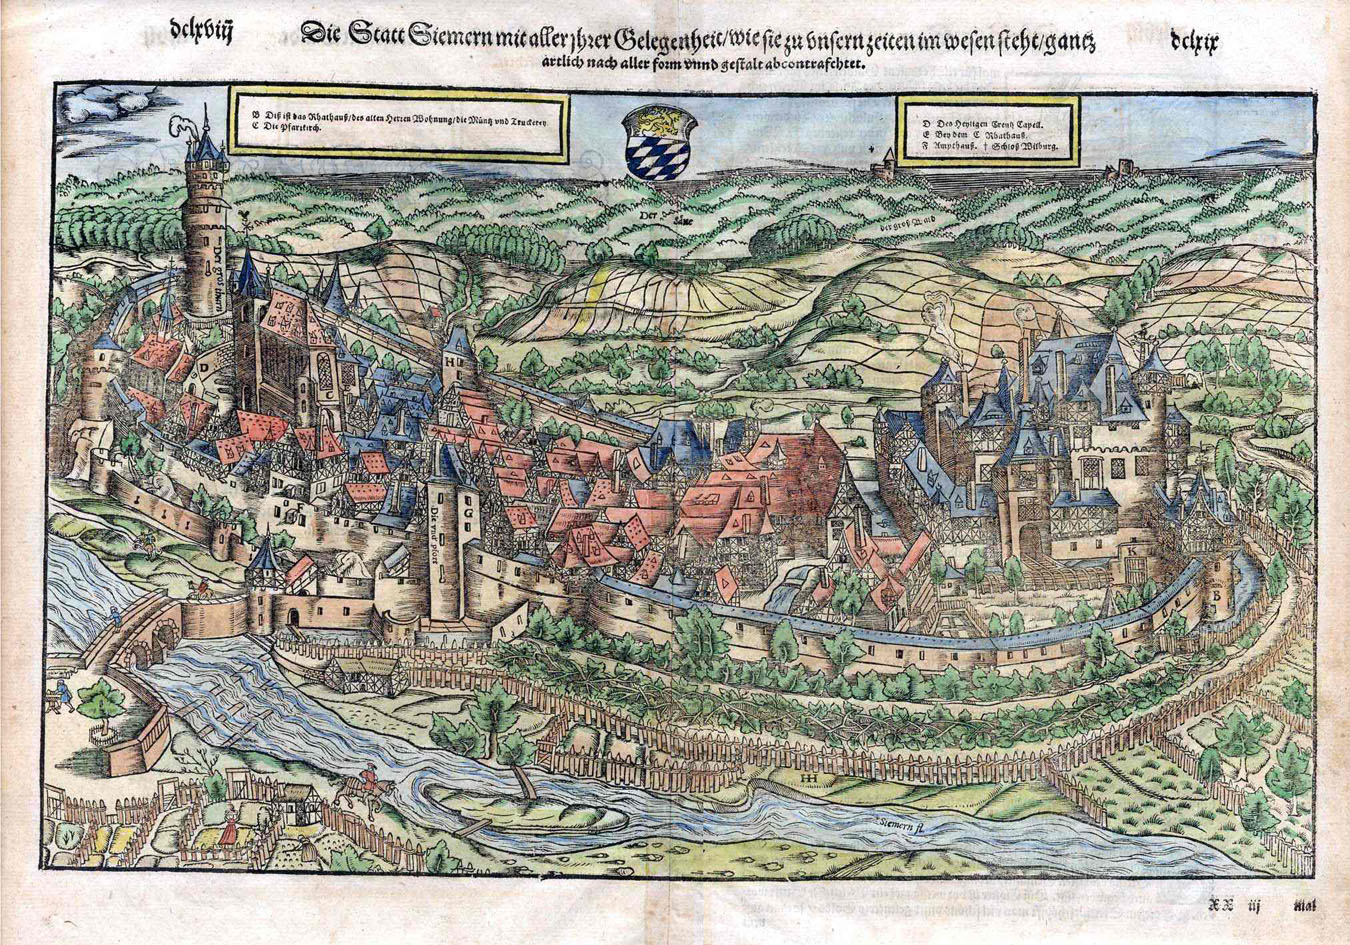 dclxviij
Die Statt Siemern mit aller jhrer Gelegenheit/wie sie zu vnsern zeiten im wesen steht/gantz
dclxix
artlich nach aller form vnnd gestalt abcontrafehtet.
B Diß ist das Rhathauß/des alten Herren Wohnung/die Müntz vnd Truckerey.
C Die Pfarrkirch.
D Des Heyligen Creutz Capell.
E Bey dem C Rhathauß.
F Ampthauß. † Schloß Wilburg.
Der
der groß Wald
Der gros thurn
H
D
G
F
Die
port
K
B
HH
Siemern fl.
XX iij